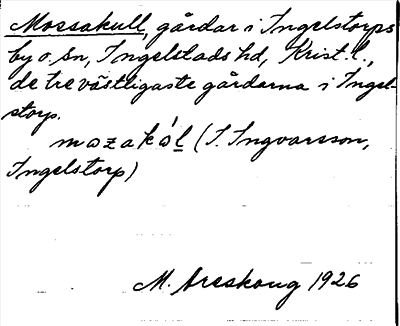 Mossakull, gårdar i Ingelstorps
by o. sn, Ingelstads hd, Krist. l.,
de tre västligaste gårdarna i Ingel-
storp.
(I. Ingvarsson,
Ingelstorp)
M. Areskoug 1926